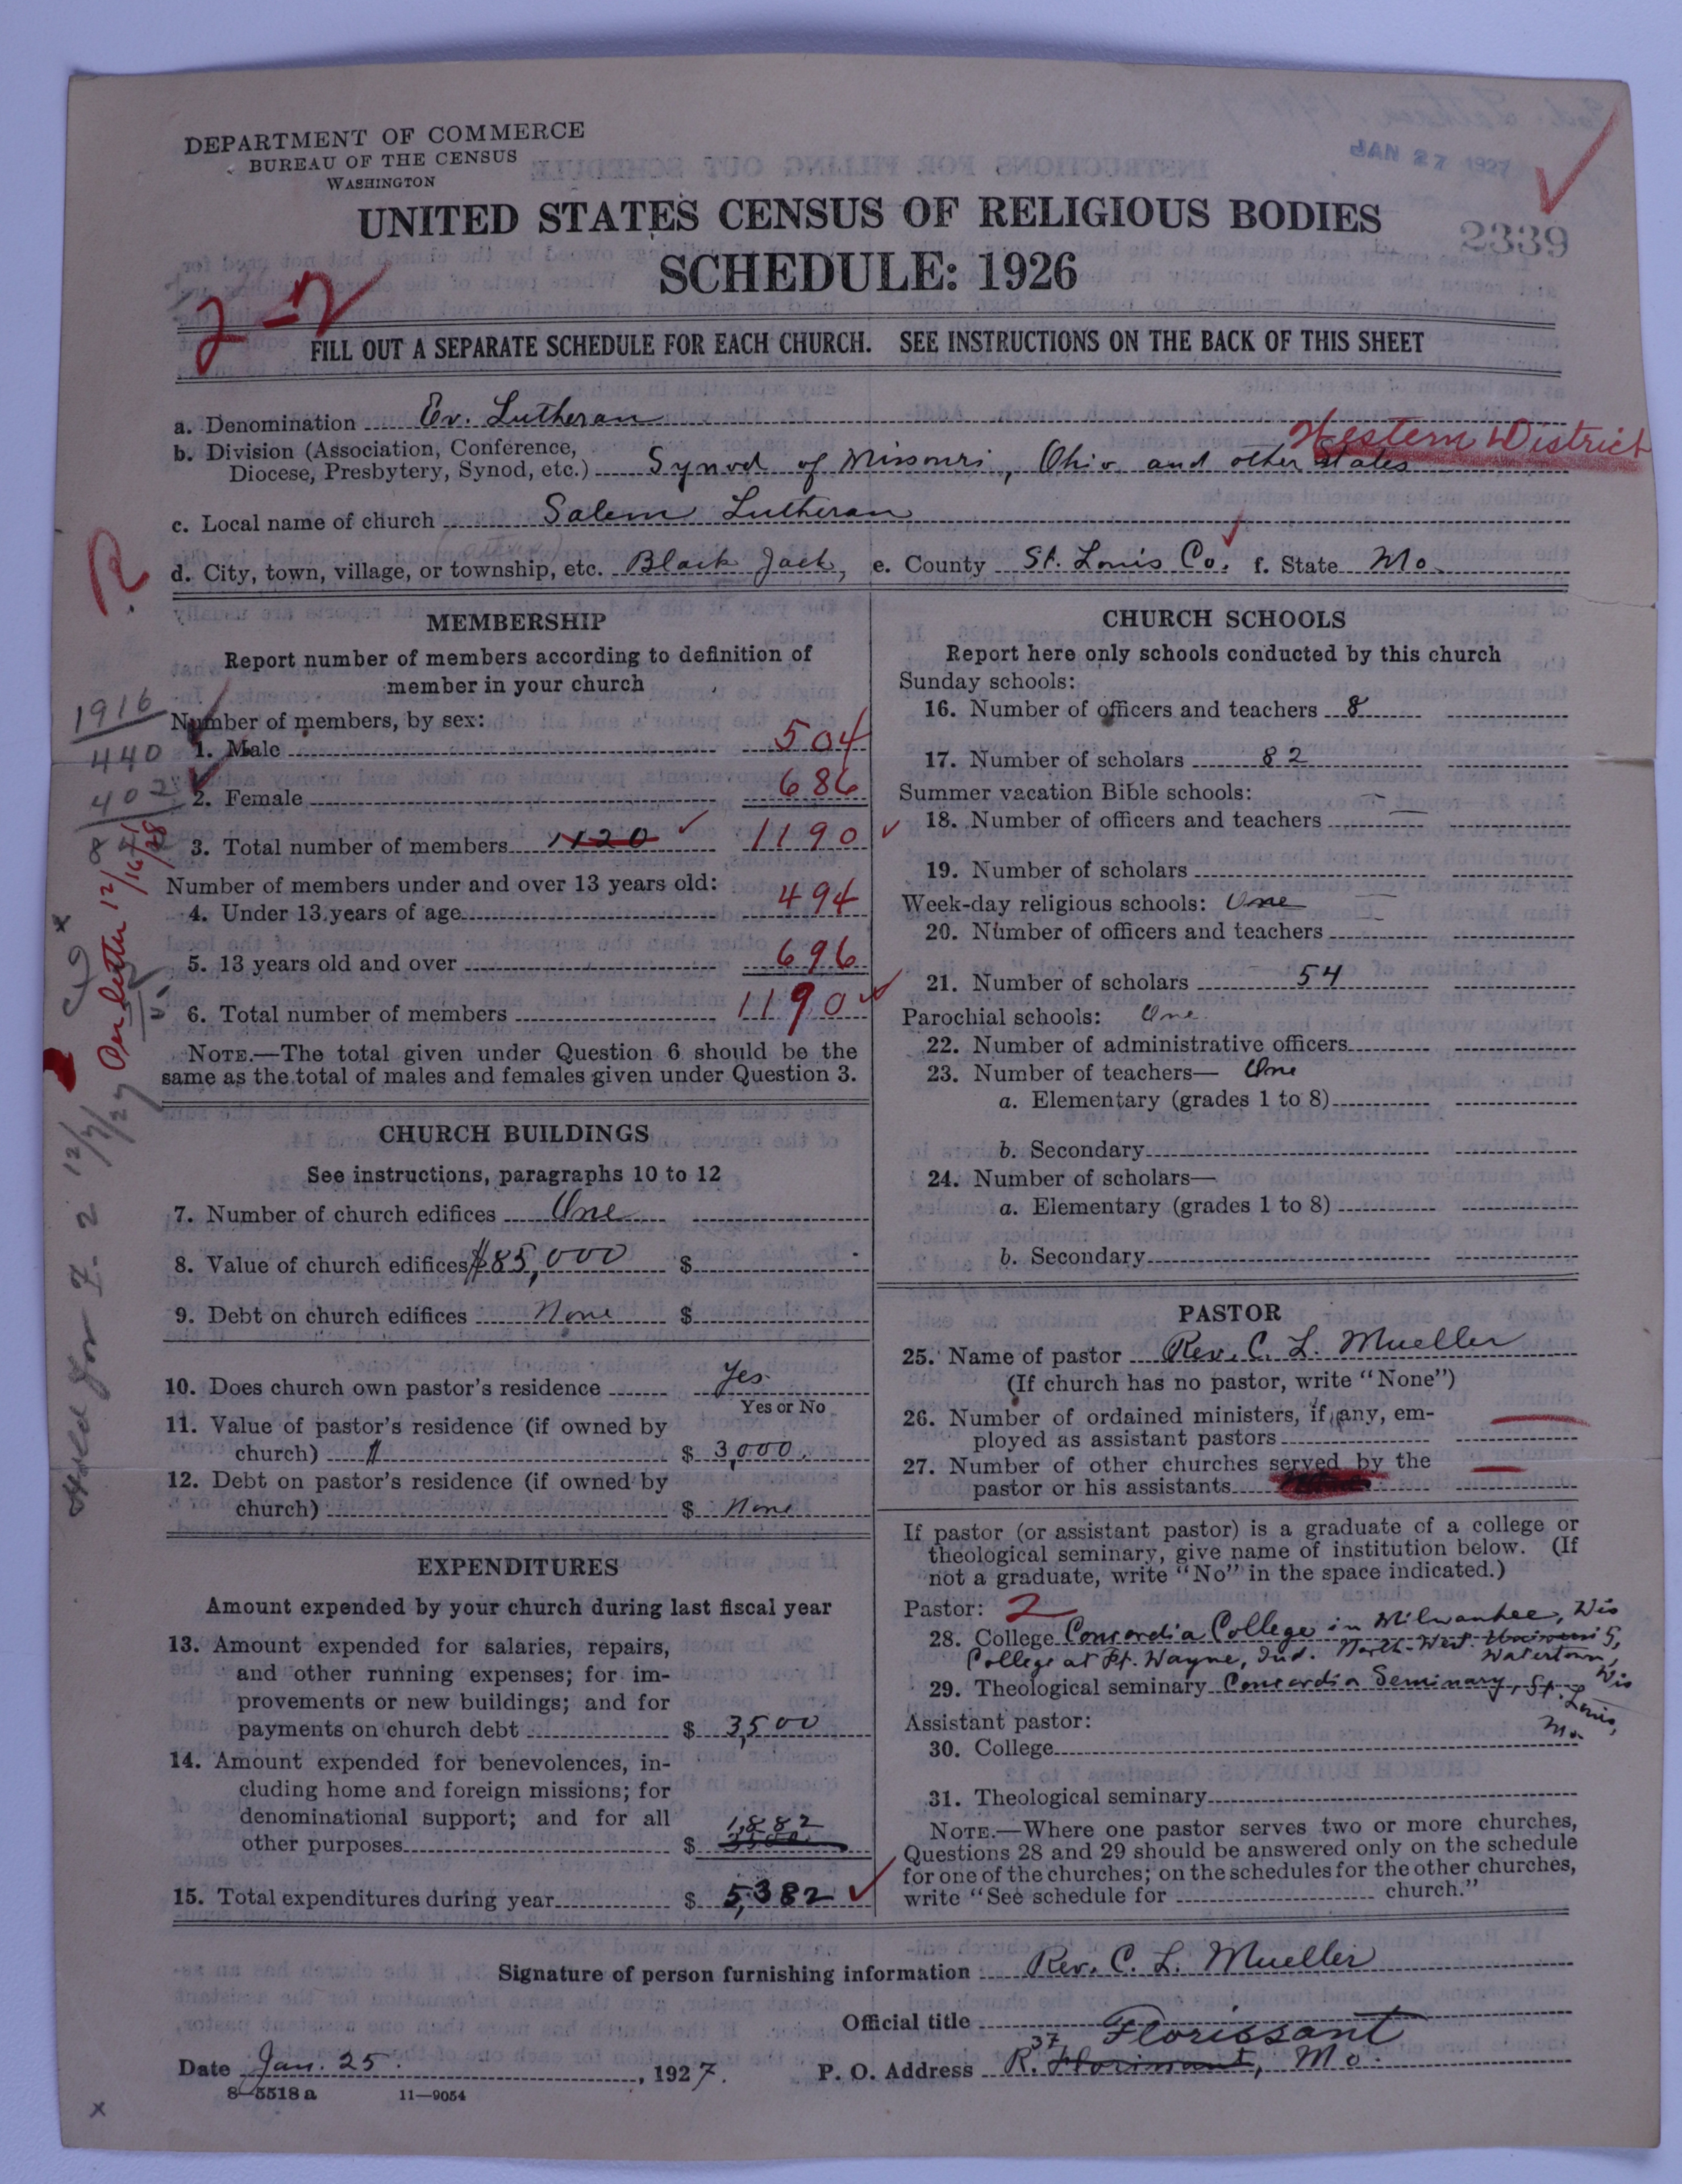 DEPARTMENT OF COMMERCE
BUREAU OF THE CENSUS
WASHINGTON
JAN 27 1927
UNITED STATES CENSUS OF RELIGIOUS BODIES
2339
SCHEDULE: 1926
2-2
FILL OUT A SEPARATE SCHEDULE FOR EACH CHURCH. SEE INSTRUCTIONS ON THE BACK OF THIS SHEET
a. Denomination Ev. Lutheran
Western District
b. Division (Association, Conference,
Diocese, Presbytery, Synod, etc.) Synod of Missouri, Ohio and other States
c. Local name of church Salem Lutheran
R.
d. City, town, village, or township, etc. Black Jack, e. County St. Louis Co. f. State Mo.
MEMBERSHIP
Report number of members according to definition of
member in your church
1916
440
402
Number of members, by sex:
1. Male 504
2. Female 686
3. Total number of members 1120 1190
Number of members under and over 13 years old:
4. Under 13 years of age 494
5. 13 years old and over 696
6. Total number of members 1190
Per letter 12/16/28
NOTE.—The total given under Question 6 should be the
same as the total of males and females given under Question 3.
Held for 12/7/27
CHURCH BUILDINGS
See instructions, paragraphs 10 to 12
7. Number of church edifices One
8. Value of church edifices $85,000 $
9. Debt on church edifices None $
10. Does church own pastor's residence Yes
Yes or No
11. Value of pastor's residence (if owned by
church) $ $ 3,000.
12. Debt on pastor's residence (if owned by
church) $ None
EXPENDITURES
Amount expended by your church during last fiscal year
13. Amount expended for salaries, repairs,
and other running expenses; for im-
provements or new buildings; and for
payments on church debt $ 3,500
14. Amount expended for benevolences, in-
cluding home and foreign missions; for
denominational support; and for all
other purposes $ 1,882
15. Total expenditures during year $ 5,382
CHURCH SCHOOLS
Report here only schools conducted by this church
Sunday schools:
16. Number of officers and teachers 8
17. Number of scholars 82
Summer vacation Bible schools: —
18. Number of officers and teachers —
19. Number of scholars
Week-day religious schools: One
20. Number of officers and teachers
21. Number of scholars 54
Parochial schools: One
22. Number of administrative officers
23. Number of teachers— One
a. Elementary (grades 1 to 8)
b. Secondary
24. Number of scholars—
a. Elementary (grades 1 to 8)
b. Secondary
PASTOR
25. Name of pastor Rev. C. L. Mueller
(If church has no pastor, write "None")
26. Number of ordained ministers, if any, em-
ployed as assistant pastors —
27. Number of other churches served by the
pastor or his assistants —
If pastor (or assistant pastor) is a graduate of a college or
theological seminary, give name of institution below. (If
not a graduate, write "No" in the space indicated.)
Pastor: 2
28. College Concordia College in Milwaukee, Wis
College at Ft. Wayne, Ind. North-West. Watertown, Wis
29. Theological seminary Concordia Seminary, St. Louis, Mo.
Assistant pastor:
30. College
31. Theological seminary
NOTE.—Where one pastor serves two or more churches,
Questions 28 and 29 should be answered only on the schedule
for one of the churches; on the schedules for the other churches,
write "See schedule for church."
Signature of person furnishing information Rev. C. L. Mueller
Official title
Florissant
Date Jan. 25. , 1927. P. O. Address R. 37 Florissant, Mo.
8—5518 a 11—9054
x